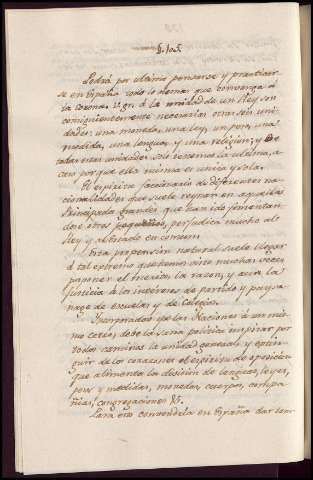 §. 105.
Podrá por ultimo pensarse y practicar-
se en España todo lo demas que convenga á
la corona. v. gr. á la unidad de un Rey son
consiguientemente necesarias otras seis uni-
dades: una moneda, una ley, un peso, una
medida, una lengua, y una religion; y de
todas estas unidades solo tenemos la ultima, a-
caso porque ella misma es unica y sola.
El espiritu faccionario de diferentes na-
cionalidades que suele reynar en aquellos
Principados grandes que han ido fomentan-
dose otros pequeños, perjudica mucho al
Rey y al Estado en comun.
Esta propension natural suele llegar
á tal extremo que hemos visto muchas veces
posponer el merito, la razon, y aun la
justicia á los intereses de partido y paysa-
nage de escuelas y de Colegios.
Incorporadas pues las Naciones á un mis-
mo cetro, debe la sana politica inspirar por
todos caminos la unidad general, y extin-
guir de los corazones el espiritu de oposicion
que alimenta la division de lenguas, leyes,
pesos y medidas, monedas, cuerpos, compa-
ñias, congregaciones &.
Para eso convendria en España dar tan-